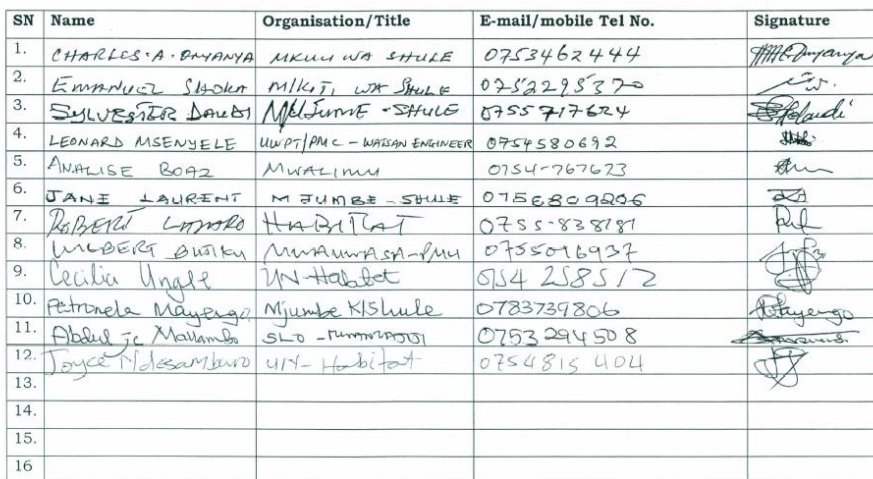 SN Name Organisation/Title E-mail/mobile Tel No. Signature
1. CHARLES·A·ONYANYA MKUU WA SHULE 0753462444
2. EMANUEL M/KITI WA SHULE 0752295370
3. SYLVESTER DAUDI M/JUMBE - SHULE 0755717624
4. LEONARD MSENYELE UWPT/PMC - WATSAN ENGINEER 0754580692
5. ANALISE BOAZ MWALIMU 0754-767623
6. JANE LAURENT MJUMBE - SHULE 0756809206
7. ROBERT HABITAT 0755-838181
8. WILBERT MWAUWASA-PMU 0755016937
9. Cecilia UN-Habitat 0754 258512
10. Petronela Mayengo Mjumbe K/Shule 0783739806 Mayengo
11. Abdul Mallambo SLO - 0753294508
12. Joyce Ndesamburo UN-Habitat 0754815404
13.
14.
15.
16